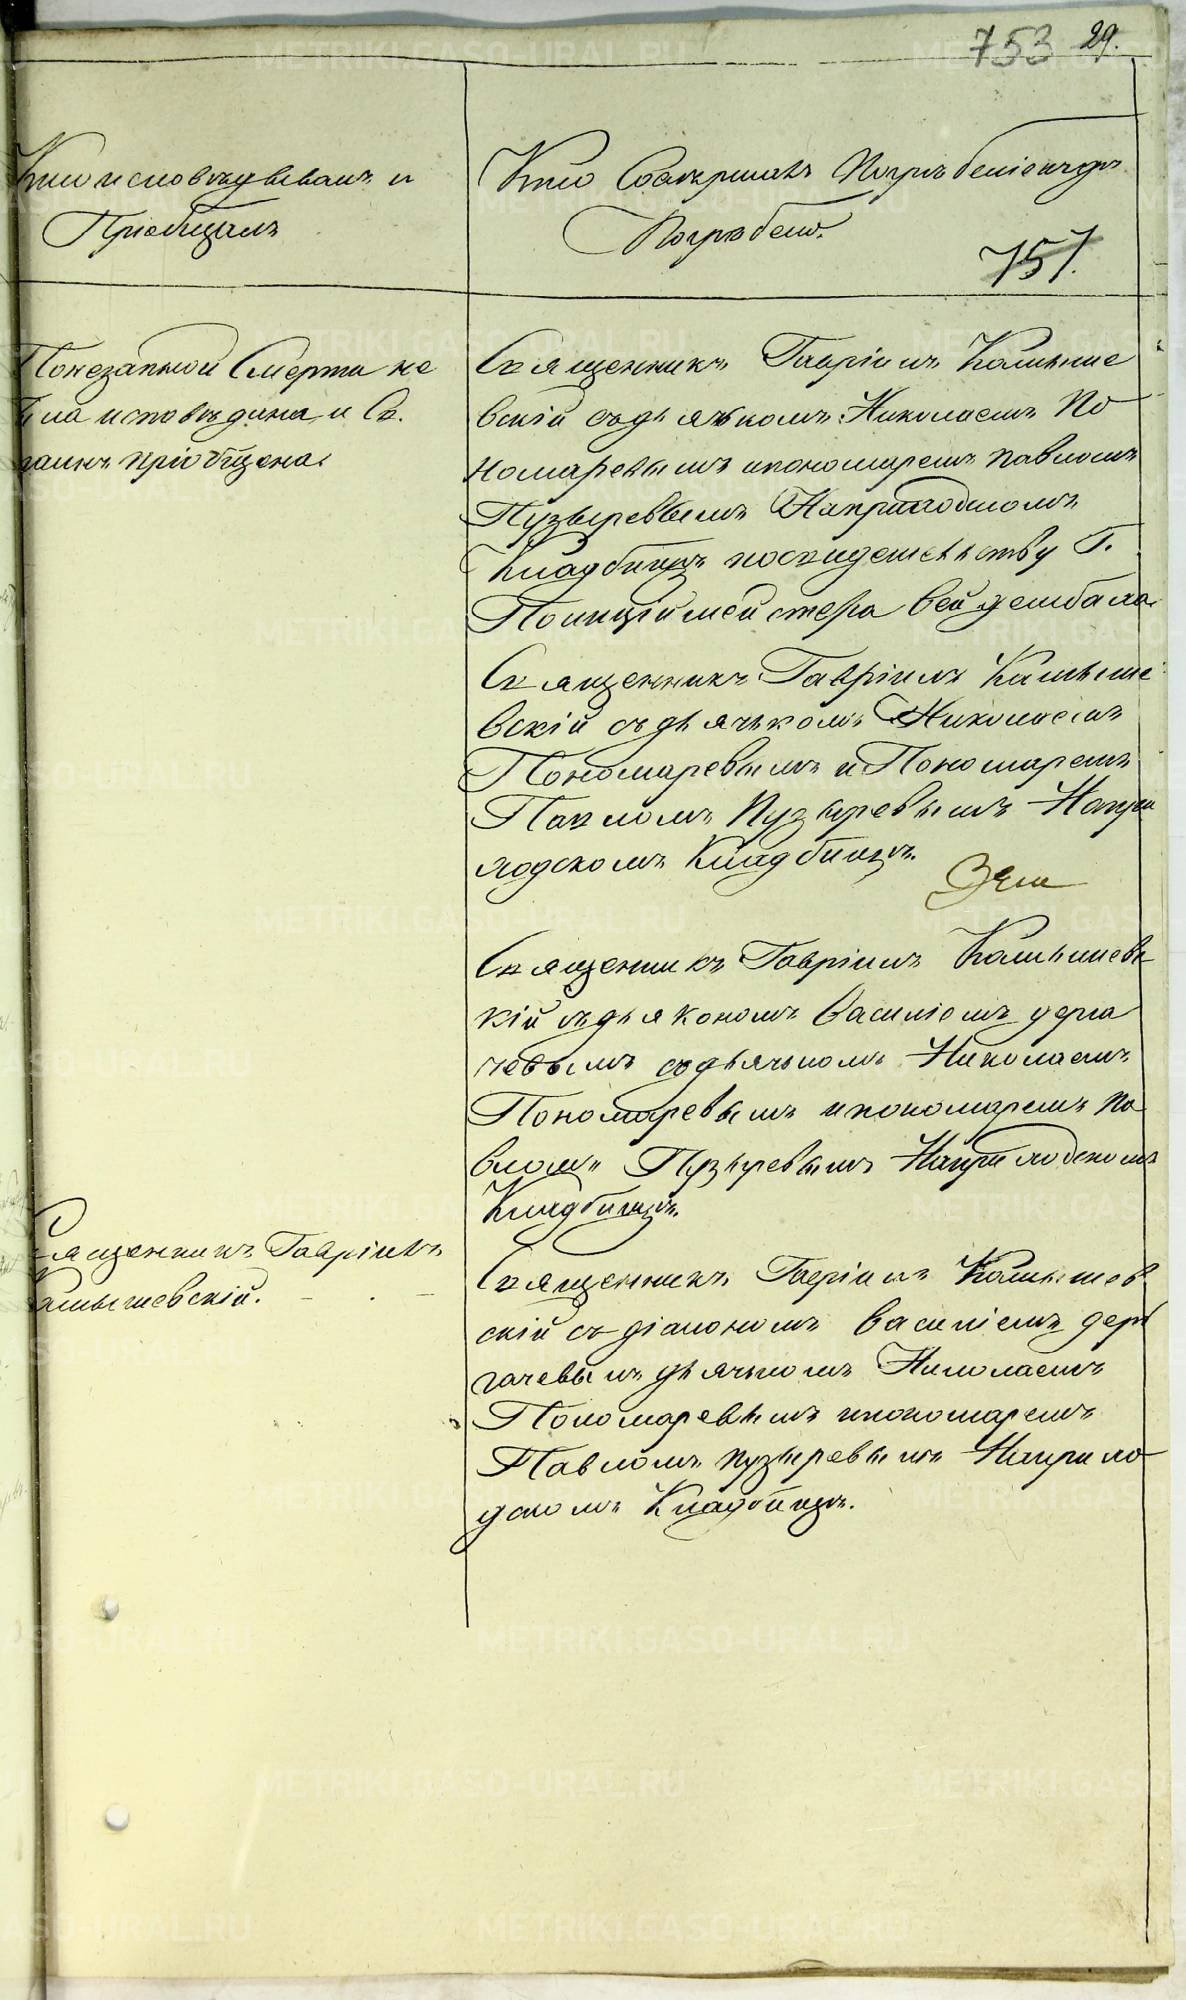 753 29.
Кто исповѣдывалъ и
Пріобщалъ
Кто Совершалъ Погрѣбеніе игдѣ
Погрѣбено.
757.
Понезапной Смерти не
была исповѣдина и Св.
таинъ пріобщена.
Священникъ Гавріилъ Камыше
вскій съдьячкомъ Николаемъ По
номаревымъ ипономаремъ павломъ
Пузыревымъ Наприходскомъ
Кладбищѣ посвидетельству Г.
Полицїймейстера
Священникъ Гавріилъ Камыше
вскій съдьячькомъ Николаемъ
Пономаревымъ и Пономаремъ
Павломъ Пузыревымъ Напри
ходскомъ Кладбищѣ.
Священникъ Гавріилъ Камышевс
кій съдьякономъ Василіемъ дерга
чевымъ съдьячькомъ Николаемъ
Пономаревымъ ипономаремъ Па
вломъ Пузыревымъ Наприходскомъ
Кладбищѣ.
Священникъ Гавріилъ
Камышевскій.
Священникъ Гавріилъ Камышев
скій съ діакономъ Василіемъ дер
гачевымъ дьячькомъ Николаемъ
Пономаревымъ ипономаремъ
Павломъ пузыревымъ Наприхо
дскомъ Кладбищѣ.
METRIKI.GASO-URAL.RU